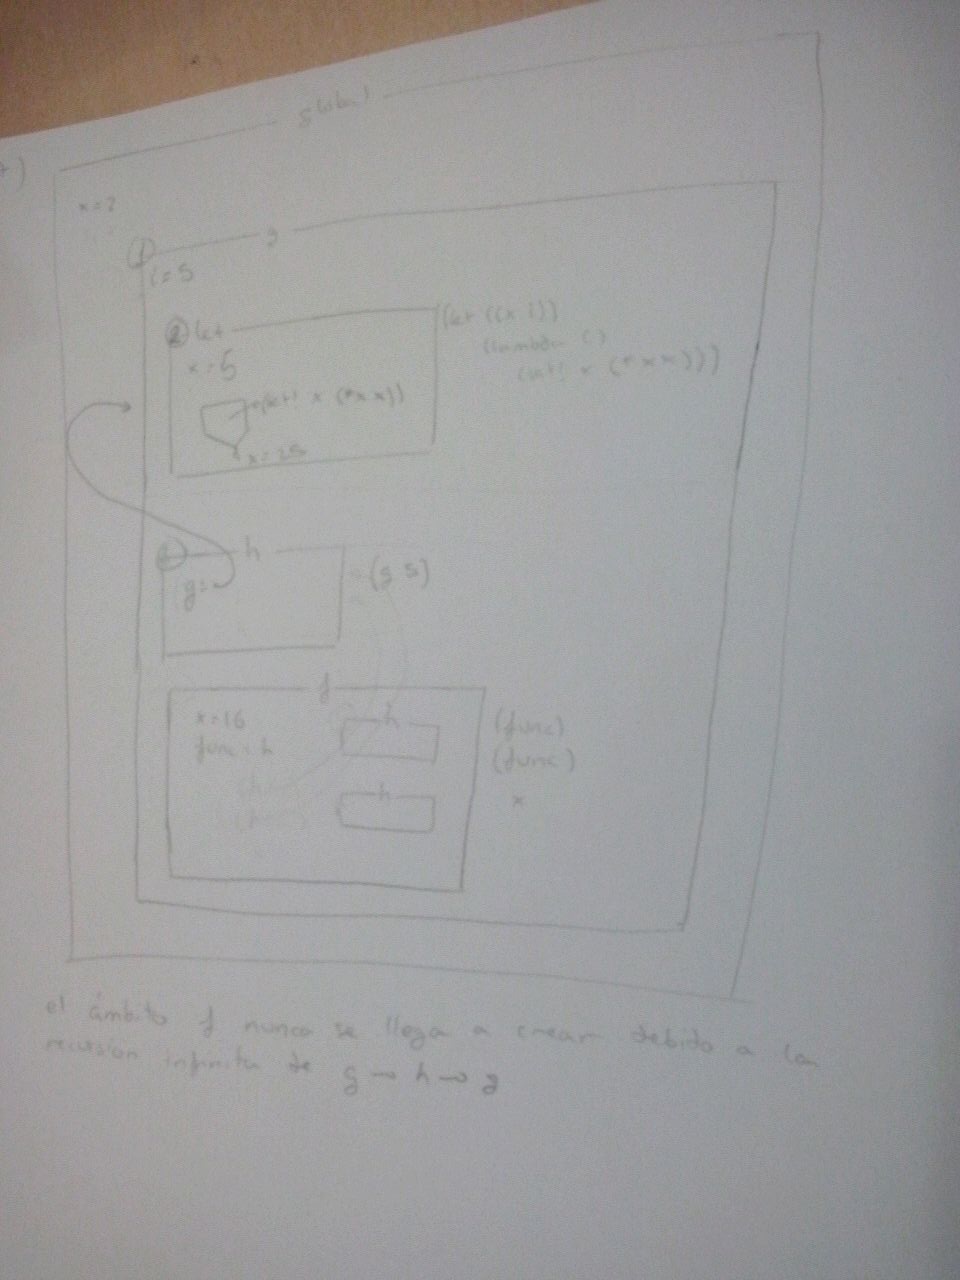 global
x=?
1 g
i=5
2 let
x=5
(let ((x i))
(lambda ()
(set! x (* x x)))
(set! x (* x x))
x=25
h
g=
(g 5)
f
x=16
func: h
h
h
(func)
(func)
x
el ámbito f nunca se llega a crear debido a la
recursión infinita de g → h → g